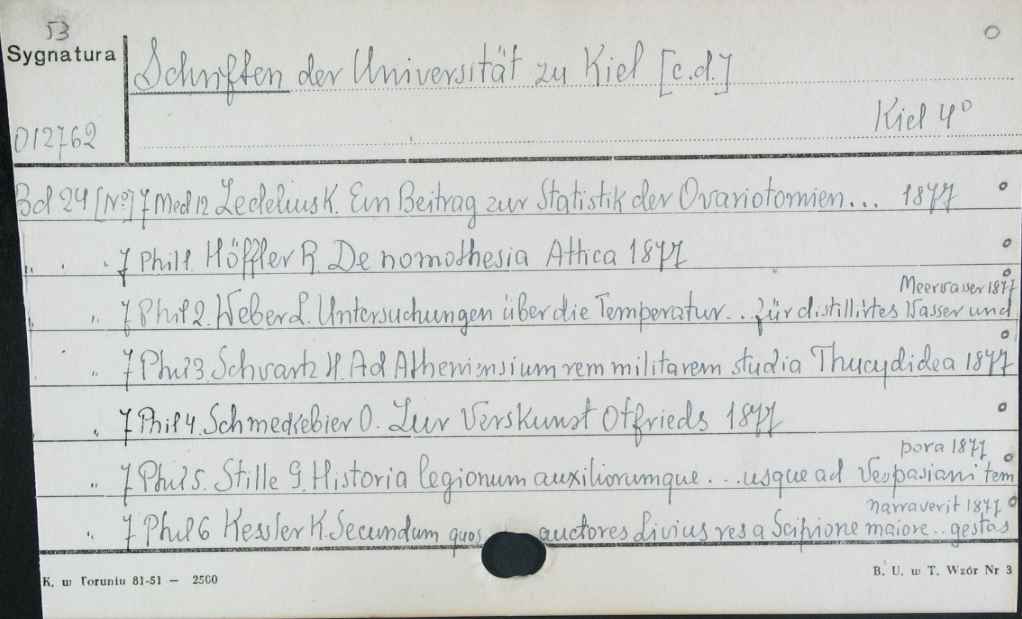 53
Sygnatura
Schriften der Universität zu Kiel [c.d.]
012762
Kiel 4°
Bd 24 [Nr] 7 Med 12 Zedelius K. Ein Beitrag zur Statistik der Ovariotomien... 1877
" . . 7 Phil 1. Höffler R. De nomothesia Attica 1877
Meerwasser 1877
" 7 Phil 2. Weber L. Untersuchungen über die Temperatur... für distillirtes Wasser und
" 7 Phil 3 Schvartz H. Ad Atheniensium rem militarem studia Thucydidea 1877
" 7 Phil 4. Schmeckebier O. Zur Verskunst Otfrieds 1877
pora 1877
" 7 Phil 5. Stille G. Historia legionum auxiliorumque... usque ad Vespasiani tem
narraverit 1877
" 7 Phil 6 Kessler K. Secundum quos auctores Livius res a Scipione maiore.. gestas
K. w Toruniu 81-51 — 2500
B. U. w T. Wzór Nr 3